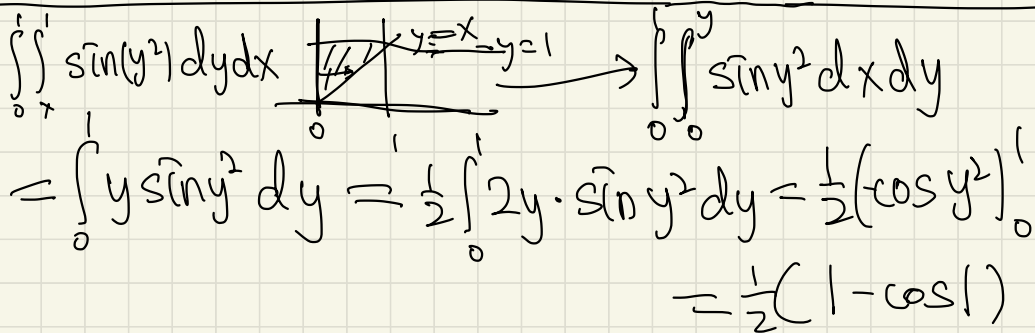 ∫₀¹∫ₓ¹ sin(y²) dydx y=x y=1 0 1 → ∫₀¹∫₀^y siny² dxdy
= ∫₀¹ y siny² dy = ½∫₀¹ 2y·siny² dy = ½(-cos y²)₀¹
= ½(1-cos1)